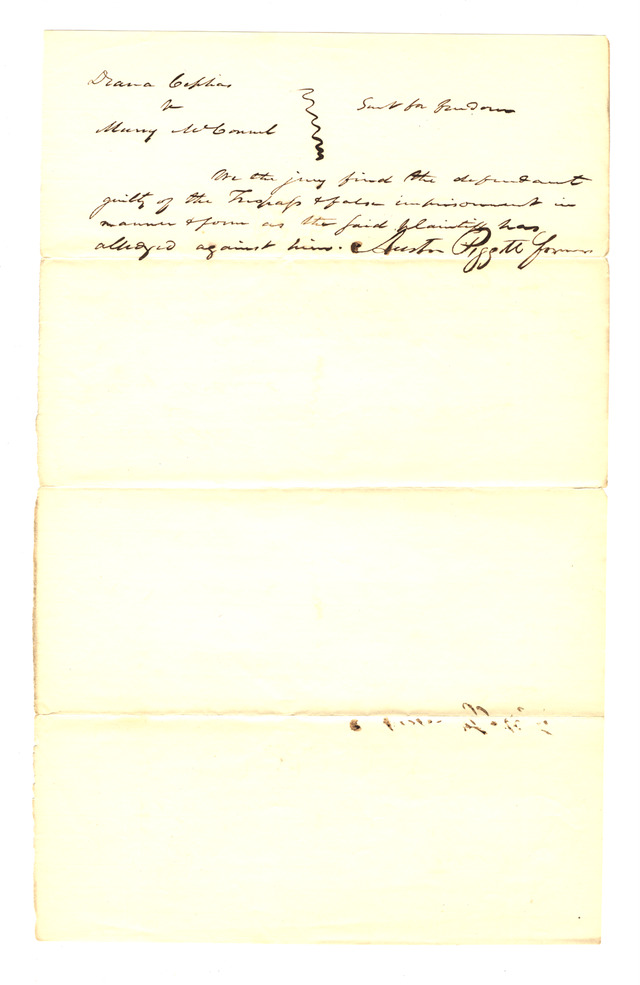 Diana Cephas
v
Murry McConnel
Suit for freedom
We the jury find the defendant
guilty of the Trespass & false imprisonment in
manner & form as the said plaintiff has
alledged against him. Austin Piggott forman